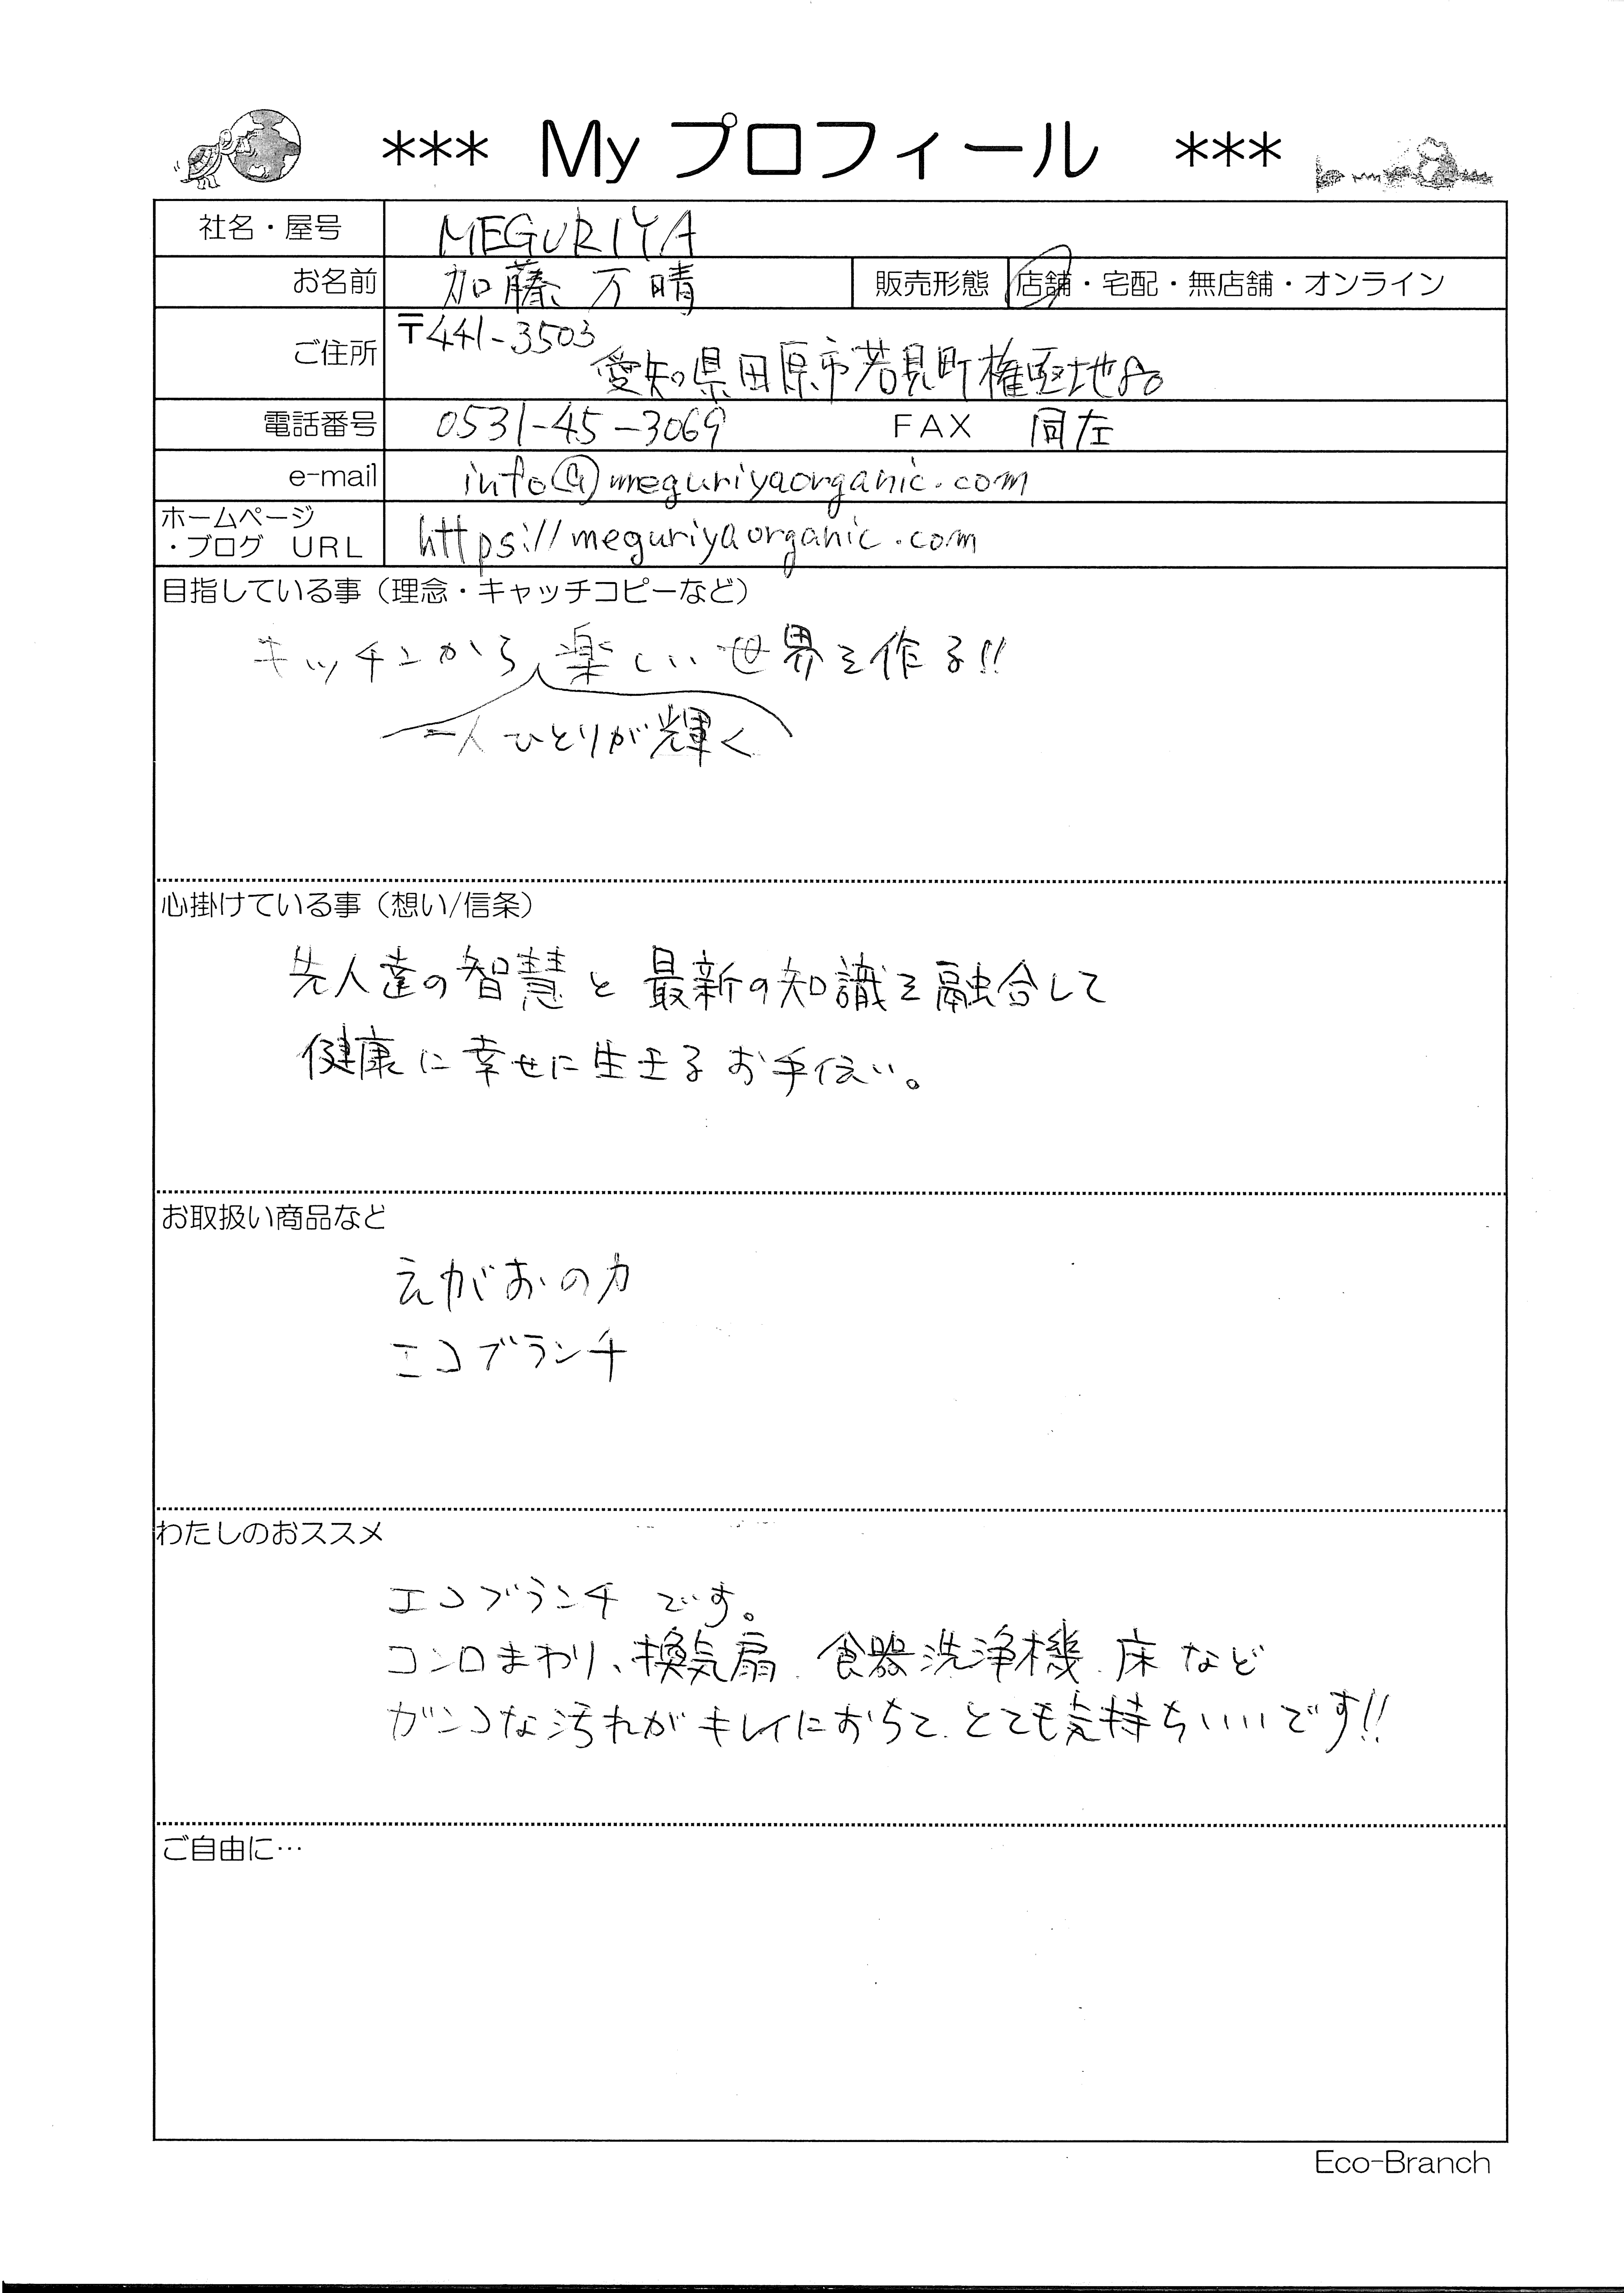 *** My プロフィール ***
社名・屋号 MEGURIYA
お名前 加藤 万晴 販売形態 店舗・宅配・無店舗・オンライン
ご住所 〒441-3503
愛知県田原市若見町権亟地80
電話番号 0531-45-3069 FAX 同左
e-mail info@meguriyaorganic.com
ホームページ
・ブログ URL https://meguriyaorganic.com
目指している事(理念・キャッチコピーなど)
キッチンから楽しい世界を作る!!
一人ひとりが輝く
心掛けている事(想い/信条)
先人達の智慧と最新の知識を融合して
健康に幸せに生きるお手伝い。
お取扱い商品など
えがおの力
エコブランチ
わたしのおススメ
エコブランチです。
コンロまわり、換気扇、食器洗浄機、床など
ガンコな汚れがキレイにおちて、とても気持ちいいです!!
ご自由に…
Eco-Branch